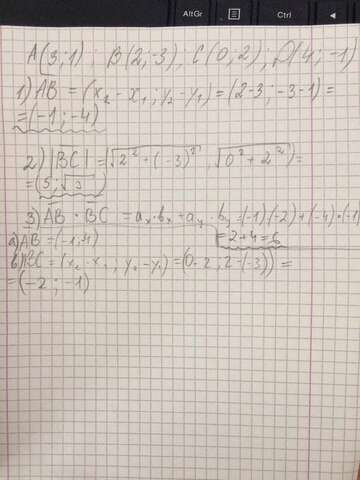 AltGr Ctrl
A(3;1); B(2;-3); C(0;2); D(4;-1)
1) AB = (x₂ - x₁; y₂ - y₁) = (2-3; -3-1) =
= (-1; -4)
2) |BC| = √2² + (-3)², √0² + 2² =
= (5; √3)
3) AB · BC = aₓ · bₓ + aᵧ · bᵧ = (-1)·(-2) + (-4)·(-1)
= 2+4 = 6
a) AB = (-1; 4)
b) BC = (x₂ - x₁; y₂ - y₁) = (0-2; 2-(-3)) =
= (-2; -1)